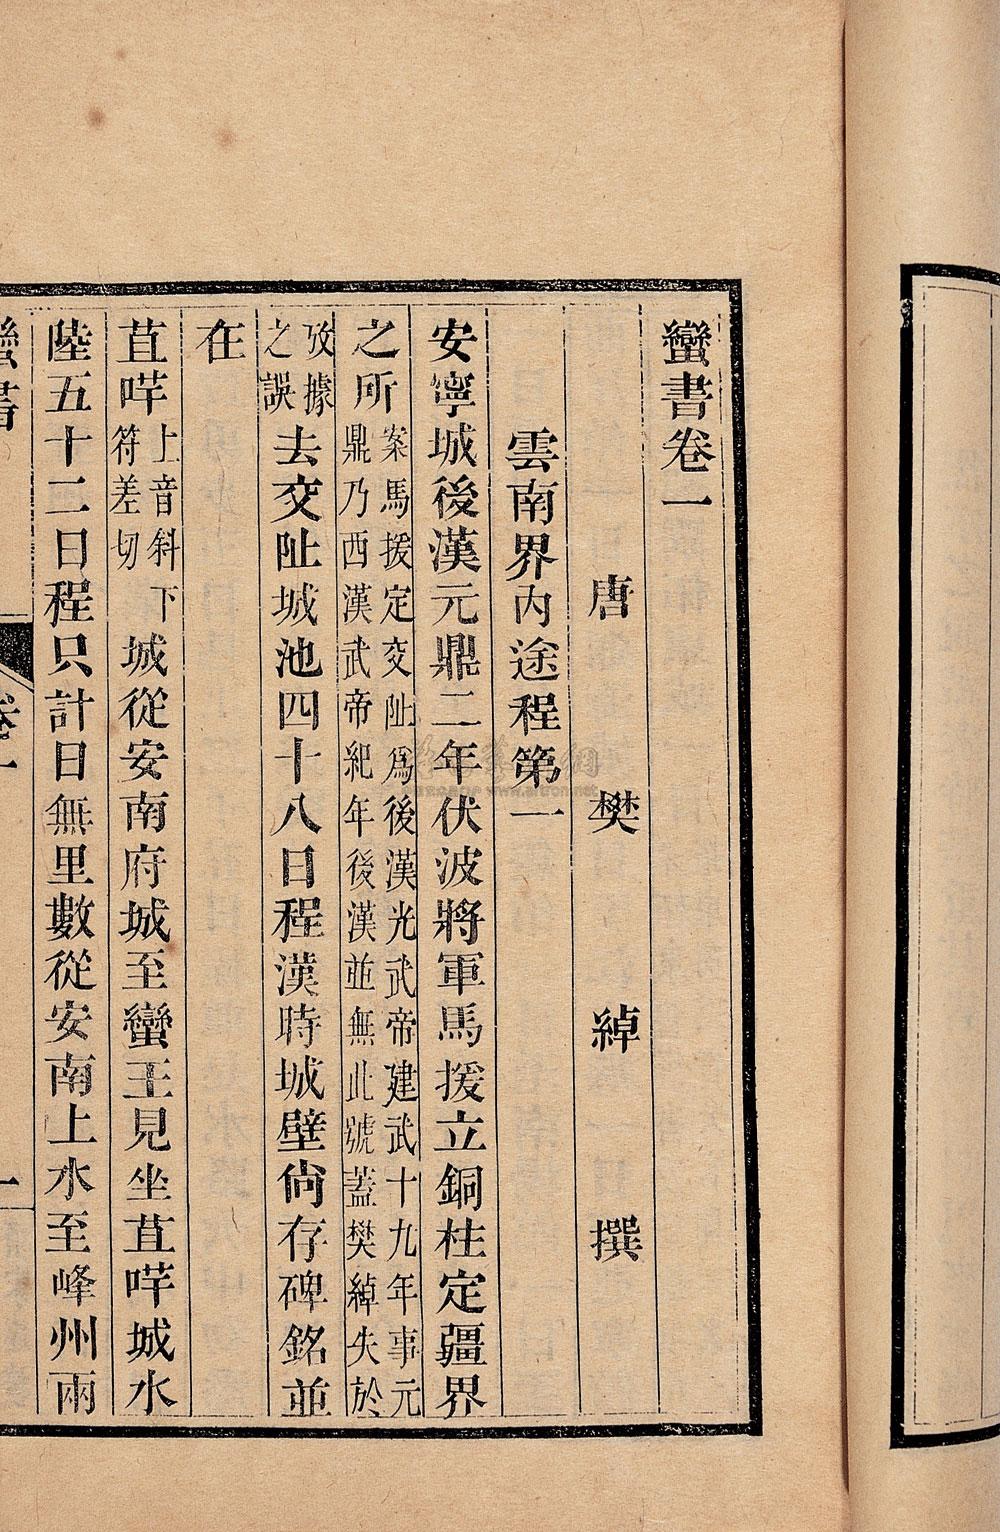 蠻書卷一
唐 樊 綽 撰
雲南界內途程第一
安寧城後漢元鼎二年伏波將軍馬援立銅柱定疆界
之所案馬援定交阯爲後漢光武帝建武十九年事元鼎乃西漢武帝紀年後漢並無此號蓋樊綽失於
攷據之誤去交阯城池四十八日程漢時城壁尙存碑銘並
在
苴咩上音斜下符差切城從安南府城至蠻王見坐苴咩城水
陸五十二日程只計日無里數從安南上水至峰州兩
蠻書
卷一
一
www.artron.net